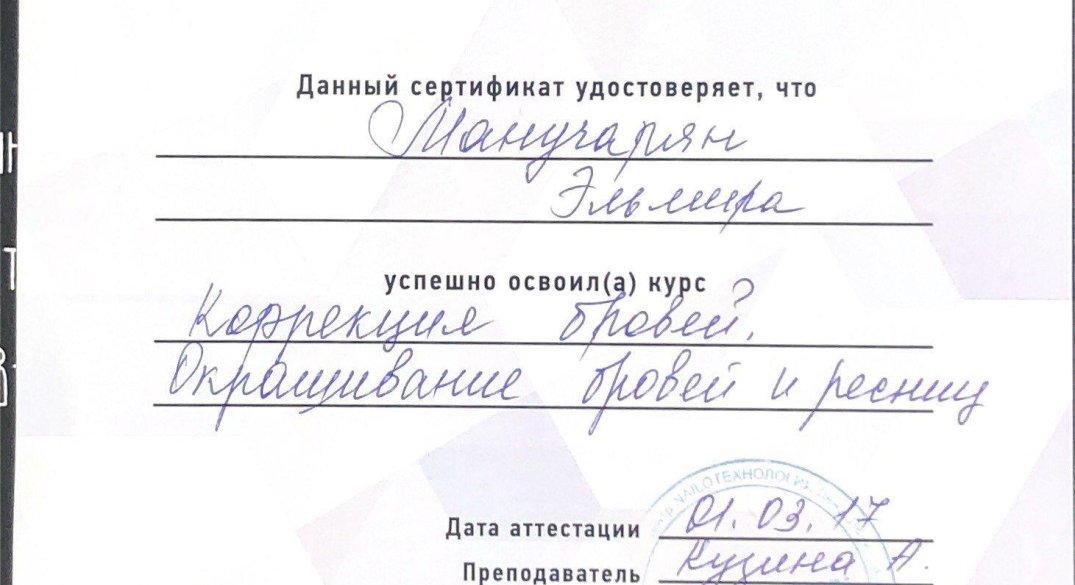 Данный сертификат удостоверяет, что
Манучарян
Эльмира
успешно освоил(а) курс
Коррекция бровей,
Окрашивание бровей и ресниц
NAILОТЕХНОЛОГИЯ
Дата аттестации 01.03.17
Преподаватель Кузина А.